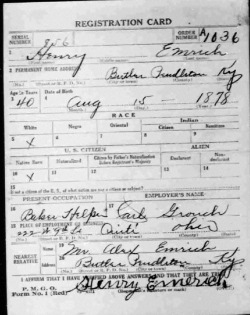 REGISTRATION CARD
SERIAL NUMBER 856 ORDER NUMBER A1036
Henry Emrich
2 PERMANENT HOME ADDRESS
Butler Pendleton Ky
Age in Years Date of Birth
40 Aug 15 1878
RACE
White Negro Oriental Indian
X
U. S. CITIZEN ALIEN
Native Born Naturalized Citizen by Father's Naturalization Before Registrant's Majority Declarant Non-declarant
X
If not a citizen of the U. S., of what nation are you a citizen or subject?
PRESENT OCCUPATION EMPLOYER'S NAME
Baker Helper Carl
PLACE OF EMPLOYMENT OR BUSINESS
222 W 9th St Ohio
NEAREST RELATIVE
Mr. Alex Emrich
Butler Pendleton Ky
I AFFIRM THAT I HAVE VERIFIED ABOVE ANSWERS AND THAT THEY ARE TRUE
P. M. G. O.
Form No. 1 (Red) Henry Emerich